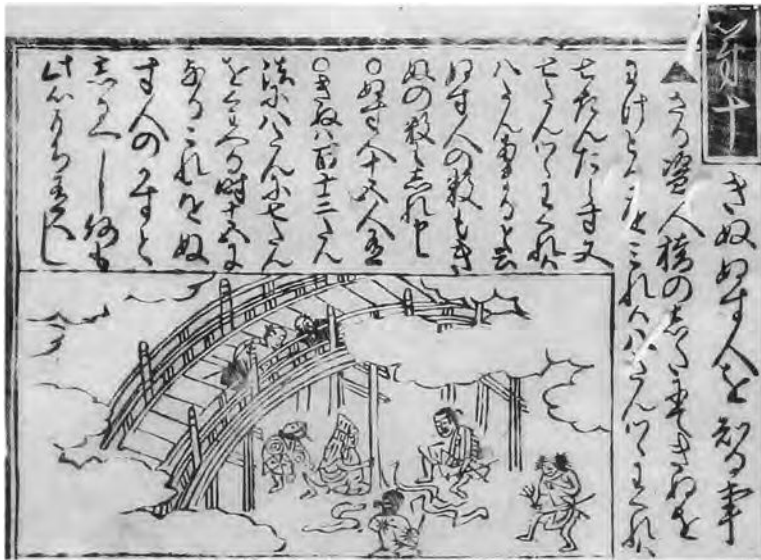 第十
きぬぬす人を知る事
▲さる盗人橋の志たにてきぬを
わけとるをミれハ八たんつゝわくれハ
七たんたらす又
七たんつゝわくれハ
八たんあまると云
ぬす人の数もき
ぬの数も志れ申
〇ぬす人十五人有
〇きぬハ百十三たん
法に八たんに七たん
をくハへる時十五に
なるこれをぬ
す人のかすと
志るへし何も
此心